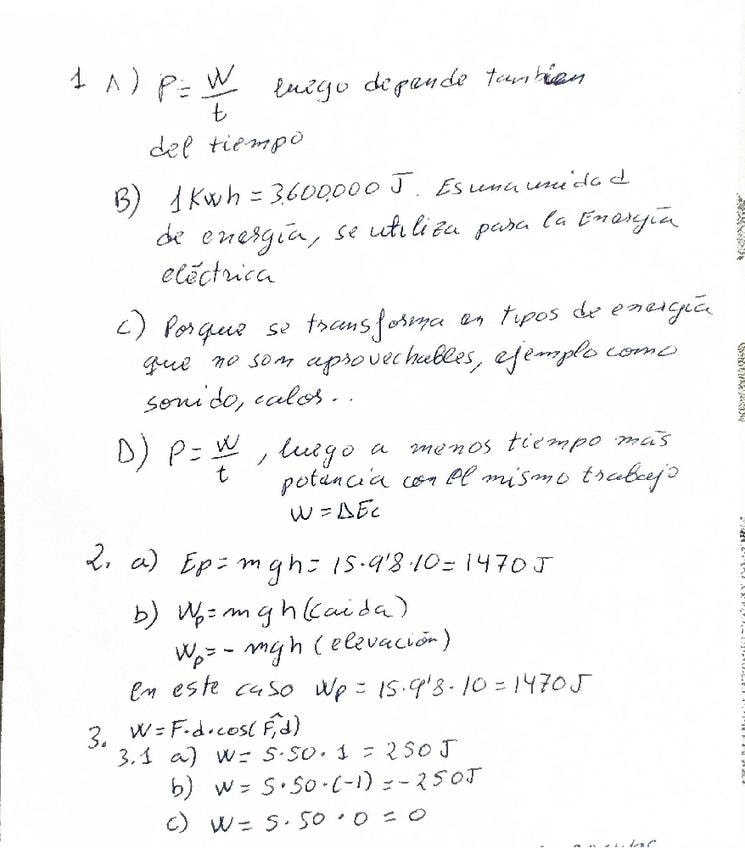 1 A) P = W/t luego depende tambien
del tiempo
B) 1Kwh = 3.600.000 J. Es una unidad
de energía, se utiliza para la Energía
eléctrica
C) Porque se transforma en tipos de energía
que no son aprovechables, ejemplo como
sonido, calor..
D) P = W/t, luego a menos tiempo más
potencia con el mismo trabajo
W = ΔEc
2. a) Ep = mgh = 15·9'8·10 = 1470 J
b) Wp = mgh (caida)
Wp = - mgh (elevación)
en este caso Wp = 15·9'8·10 = 1470 J
3. W = F·d·cos(F,d)
3.1 a) W = 5·50·1 = 250 J
b) W = 5·50·(-1) = -250J
c) W = 5·50·0 = 0